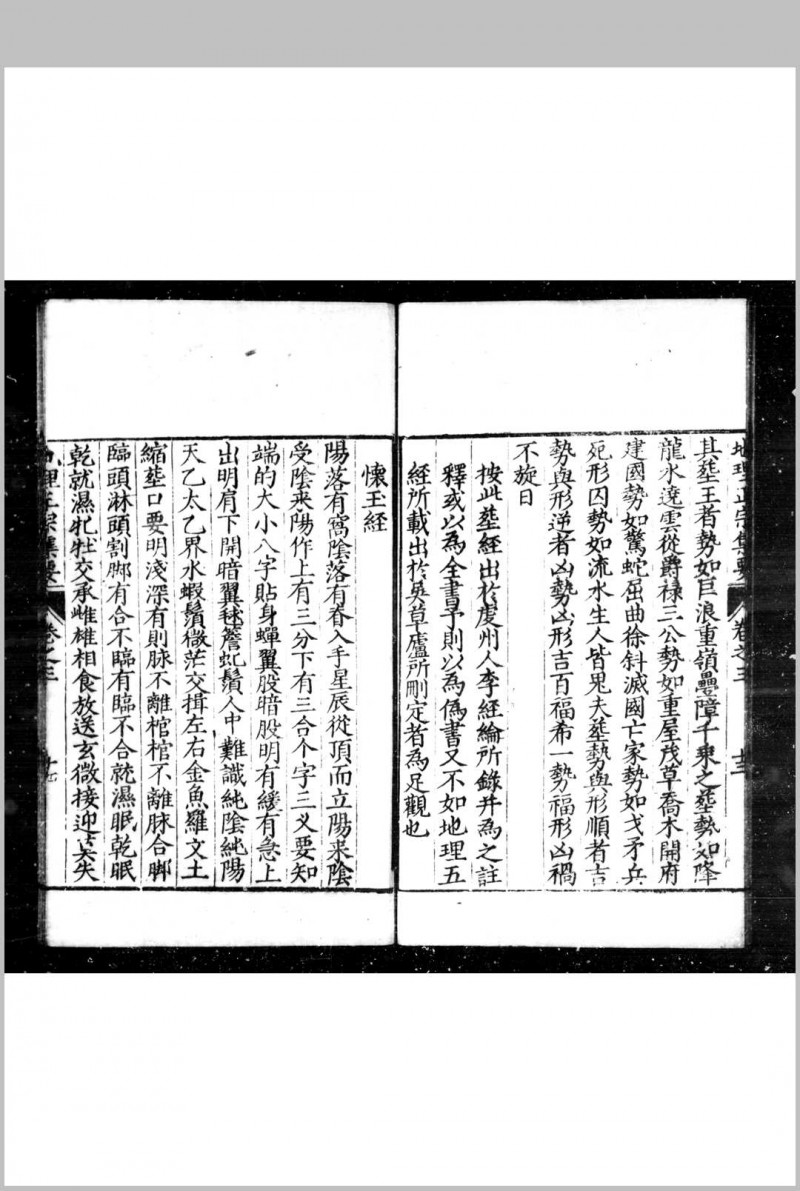 地理正宗集要 卷之三 十三
其塟王者勢如巨浪重嶺疊障千乘之塟勢如降
龍水遶雲從爵祿三公勢如重屋茂草喬木開府
建國勢如驚蛇屈曲徐斜滅國亡家勢如戈矛兵
死形囚勢如流水生人皆鬼夫塟勢與形順者吉
勢與形逆者凶勢凶形吉百福希一勢福形凶禍
不旋日
按此塟經出於虔州人李經綸所錄并為之註
釋或以為全書予則以為偽書又不如地理五
經所載出於吳草廬所刪定者為足觀也
懷玉經
陽落有窩陰落有脊入手星辰從頂而立陽來陰
受陰來陽作上有三分下有三合个字三义要知
端的大小八字貼身蟬翼股暗股明有緩有急上
出明肩下開暗翼毬簷虬鬚人中難識純陰純陽
天乙太乙界水蝦鬚微茫交揖左右金魚羅文土
縮塟口要明淺深有則脉不離棺棺不離脉合脚
臨頭淋頭割脚有合不臨有臨不合乾濕眠乾眠
乾就濕牝牡交承雌雄相食放送玄微接迎失
地理正宗集要 卷之三